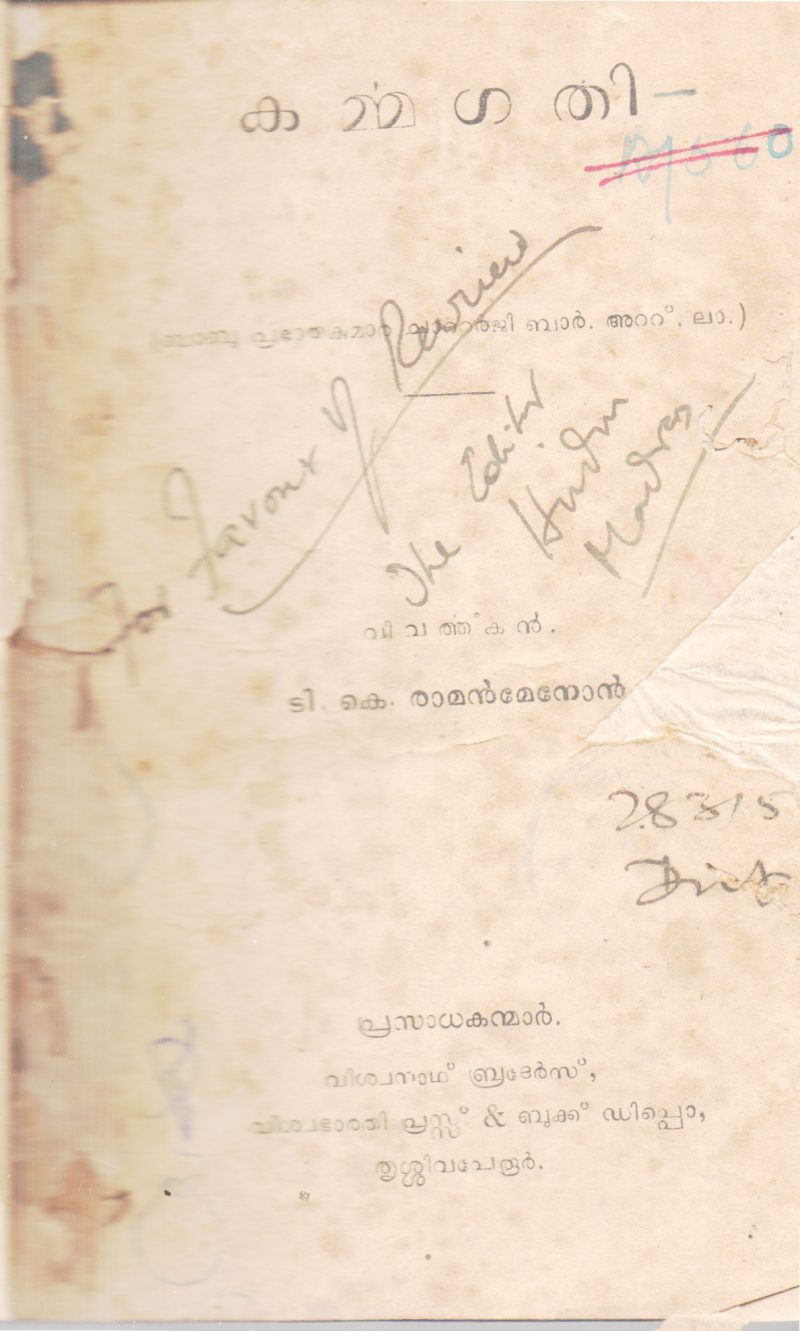 കൎമ്മഗതി
(ബാബു പ്രഭാതകുമാർ ചാറ്റർജി ബാർ. അററ്. ലാ.)
For Favour of Review
The Editor
Hindu
Madras
വിവൎത്തകൻ.
ടി. കെ. രാമൻമേനോൻ
28315
പ്രസാധകന്മാർ.
വിശ്വനാഥ് ബ്രദേർസ്,
വിശ്വഭാരതി പ്രസ്സ് & ബുക്ക് ഡിപ്പൊ,
തൃശ്ശിവപേരൂർ.